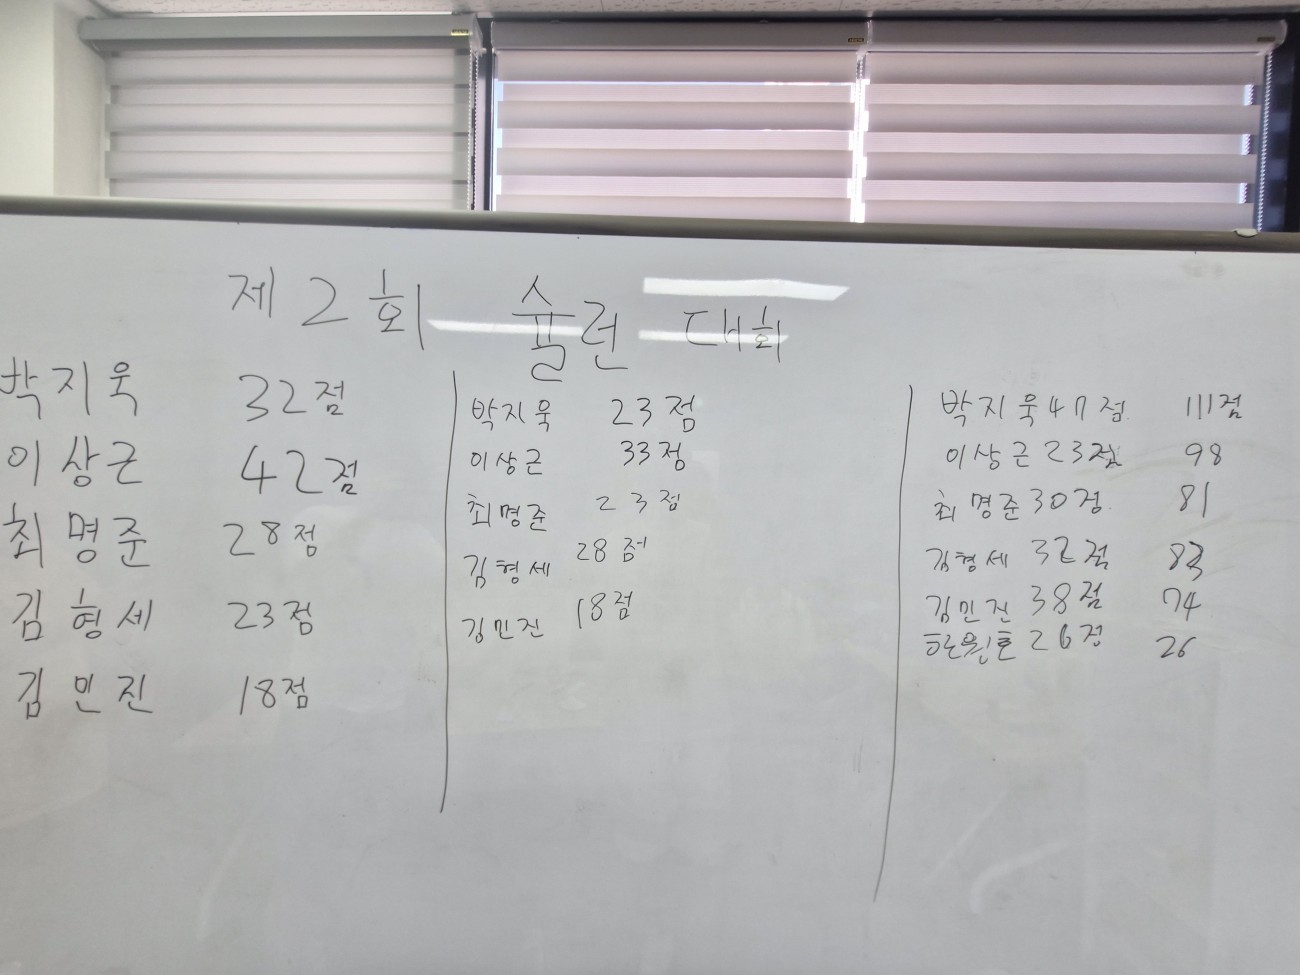 제 2 회 슐런 대회
박지욱 32점
이상근 42점
최명준 28점
김형세 23점
김민진 18점
박지욱 23점
이상근 33점
최명준 23점
김형세 28점
김민진 18점
박지욱 47점 111점
이상근 23점 98
최명준 30점 81
김형세 32점 83
김민진 38점 74
한원호 26점 26